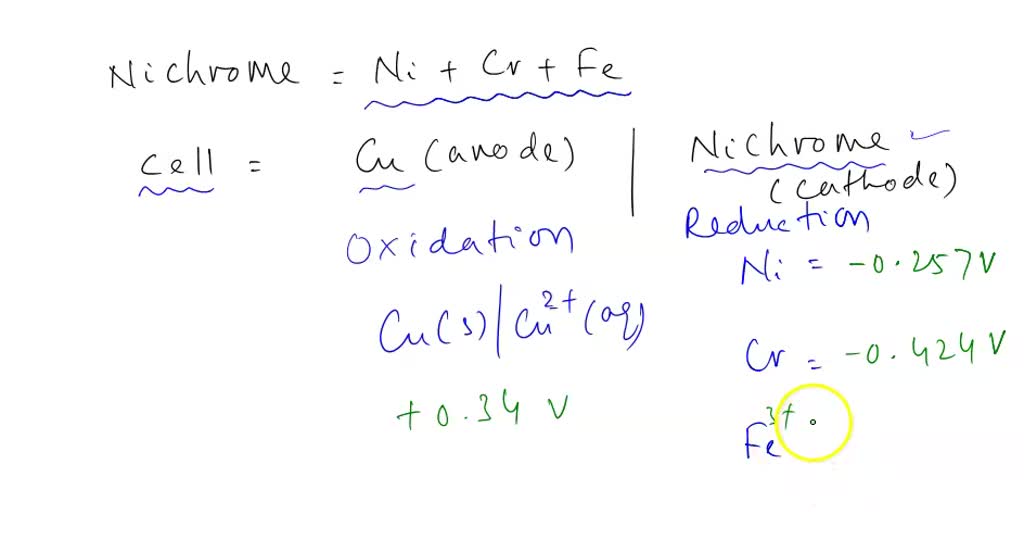 Nichrome = Ni + Cr + Fe
Cell = Cu (anode) | Nichrome
(cathode)
Oxidation Reduction
Ni = -0.257 V
Cu(s) | Cu²⁺(aq)
Cr = -0.424 V
+0.34 V
Fe³⁺